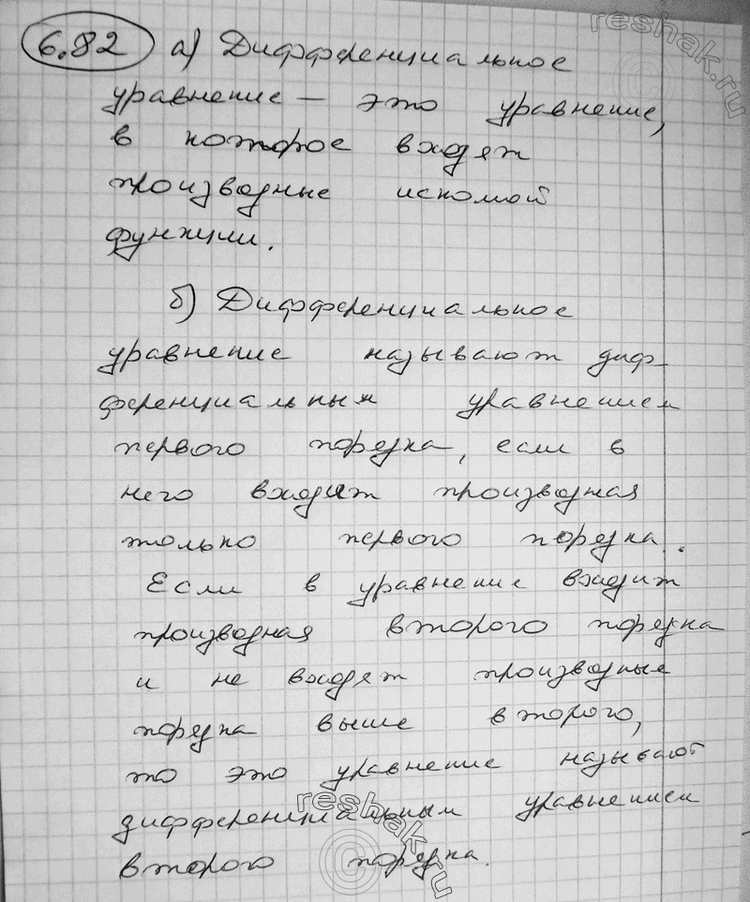 6.82 а) Дифференциальное
уравнение — это уравнение,
в которое входят
производные искомой
функции.
б) Дифференциальное
уравнение называют диф-
ференциальным уравнением
первого порядка, если в
него входит производная
только первого порядка.
Если в уравнение входит
производная второго порядка
и не входят производные
порядка выше второго,
то это уравнение называют
дифференциальным уравнением
второго порядка.
reshak.ru
reshak.ru